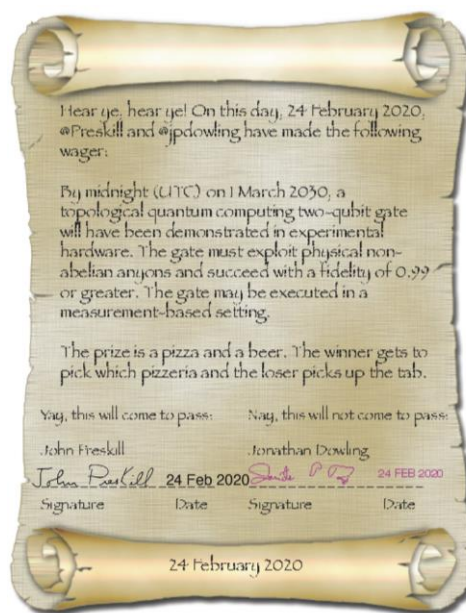 Hear ye, hear ye! On this day, 24 February 2020,
@Preskill and @jpdowling have made the following
wager:
By midnight (UTC) on 1 March 2030, a
topological quantum computing two-qubit gate
will have been demonstrated in experimental
hardware. The gate must exploit physical non-
abelian anyons and succeed with a fidelity of 0.99
or greater. The gate may be executed in a
measurement-based setting.
The prize is a pizza and a beer. The winner gets to
pick which pizzeria and the loser picks up the tab.
Yay, this will come to pass: Nay, this will not come to pass:
John Preskill Jonathan Dowling
John Preskill 24 Feb 2020 24 FEB 2020
Signature Date Signature Date
24 February 2020